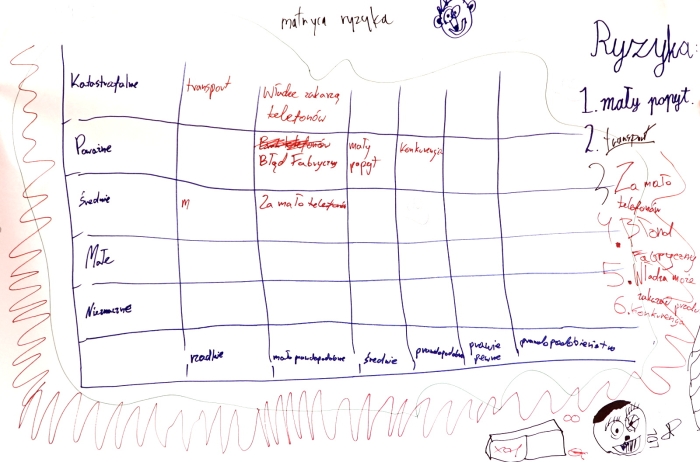 matryca ryzyka
Ryzyka:
Katastrofalne transport Władze zakarzą
telefonów
1. mały popyt.
Poważne mały Konkurencja
Błąd Fabryczny popyt
2. transport
3 Za mało
telefonów
Średnie m Za mało telefonów
4. Błond
Fabryczny
Małe
5. Władza może
zakazać
6. Konkurencja
Nieznaczne
rzadkie mało prawdopodobne średnie prawdopodobne prawie
pewne
prawdopodobieństwo